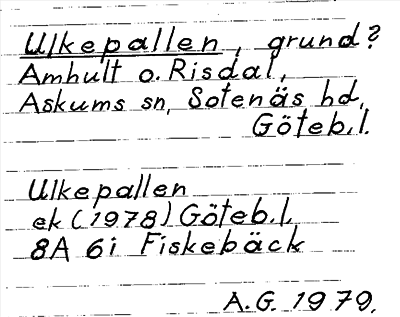 Ulkepallen, grund?
Amhult o. Risdal,
Askums sn, Sotenäs hd,
Göteb. l.
Ulkepallen
ek (1978) Göteb. l.
8A 6i Fiskebäck
A.G. 1979.